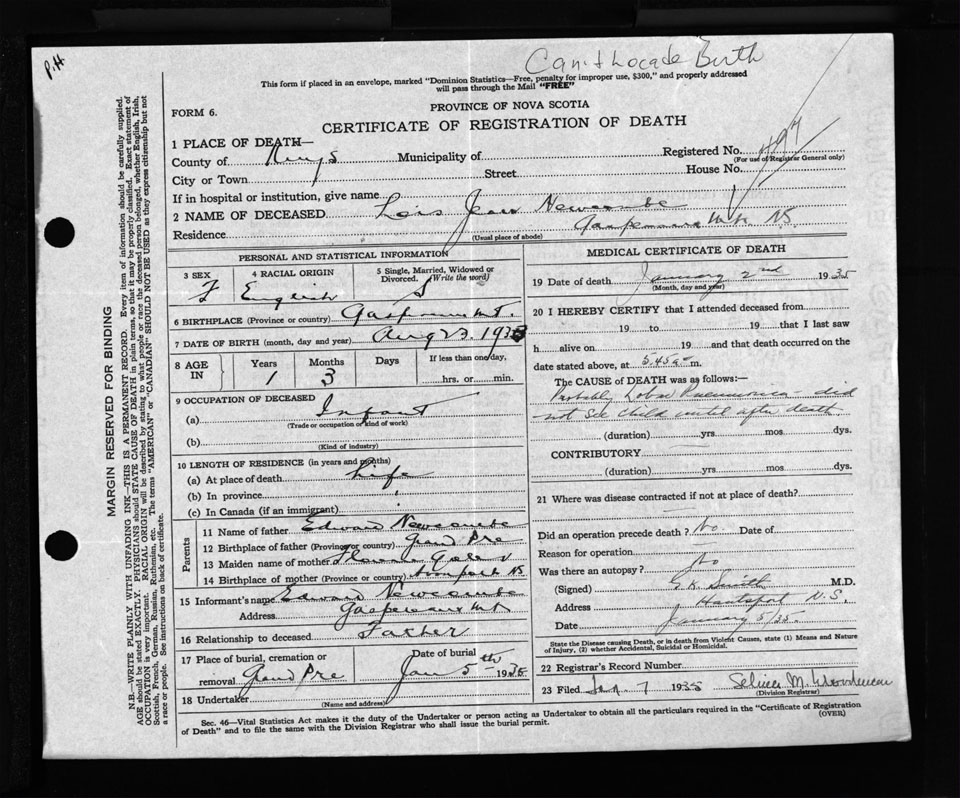 P.H
Can't Locate Birth
This form if placed in an envelope, marked "Dominion Statistics—Free, penalty for improper use, $300," and properly addressed
will pass through the Mail "FREE"
FORM 6.
PROVINCE OF NOVA SCOTIA
CERTIFICATE OF REGISTRATION OF DEATH
1 PLACE OF DEATH—
Registered No. 497
(For use of Registrar General only)
County of Kings Municipality of
City or Town Street House No.
If in hospital or institution, give name
2 NAME OF DECEASED Lois Jean Newcombe
Residence Gaspereau Mt. NS
(Usual place of abode)
PERSONAL AND STATISTICAL INFORMATION
3 SEX F
4 RACIAL ORIGIN English
5 Single, Married, Widowed or Divorced. (Write the word) S
6 BIRTHPLACE (Province or country) Gaspereau Mt.
7 DATE OF BIRTH (month, day and year) Aug 23. 1933
8 AGE IN Years 1 Months 3 Days If less than one day, hrs. or min.
9 OCCUPATION OF DECEASED
(a) Infant
(Trade or occupation or kind of work)
(b)
(Kind of industry)
10 LENGTH OF RESIDENCE (in years and months)
(a) At place of death Life
(b) In province
(c) In Canada (if an immigrant)
Parents
11 Name of father Edward Newcombe
12 Birthplace of father (Province or country) Grand Pre
13 Maiden name of mother Florence
14 Birthplace of mother (Province or country) NS.
15 Informant's name Edward Newcombe
Address Gaspereaux Mt
16 Relationship to deceased Father
17 Place of burial, cremation or removal Grand Pre
Date of burial Jan 5th 1935
18 Undertaker
(Name and address)
MEDICAL CERTIFICATE OF DEATH
19 Date of death January 2nd 1935
(Month, day and year)
20 I HEREBY CERTIFY that I attended deceased from
19 to 19 that I last saw
h alive on 19 and that death occurred on the
date stated above, at 5.45 a m.
The CAUSE OF DEATH was as follows:—
Probably Lobar Pneumonia did
not see child until after death
(duration) yrs mos dys.
CONTRIBUTORY
(duration) yrs mos dys.
21 Where was disease contracted if not at place of death?
Did an operation precede death? No. Date of
Reason for operation
Was there an autopsy? No
(Signed) G.K. Smith M.D.
Address Hantsport N.S.
Date January 5/35.
State the Disease causing Death, or in death from Violent Causes, state (1) Means and Nature
of Injury, (2) whether Accidental, Suicidal or Homicidal.
22 Registrar's Record Number
23 Filed Jan. 7 1935 M.
(Division Registrar)
Sec. 46—Vital Statistics Act makes it the duty of the Undertaker or person acting as Undertaker to obtain all the particulars required in the "Certificate of Registration
of Death" and to file the same with the Division Registrar who shall issue the burial permit.
(OVER)
MARGIN RESERVED FOR BINDING
N.B.—WRITE PLAINLY WITH UNFADING INK—THIS IS A PERMANENT RECORD. Every item of information should be carefully supplied.
AGE should be stated EXACTLY. PHYSICIANS should STATE CAUSE OF DEATH in plain terms, so that it may be properly classified. Exact statement of
OCCUPATION is very important. RACIAL ORIGIN will be described by stating to what people or race the deceased person belonged, whether English, Irish,
Scottish, French, German, Russian, Ruthenian, etc. The terms "AMERICAN" or "CANADIAN" SHOULD NOT BE USED as they express citizenship but not
a race or people. See instructions on back of certificate.